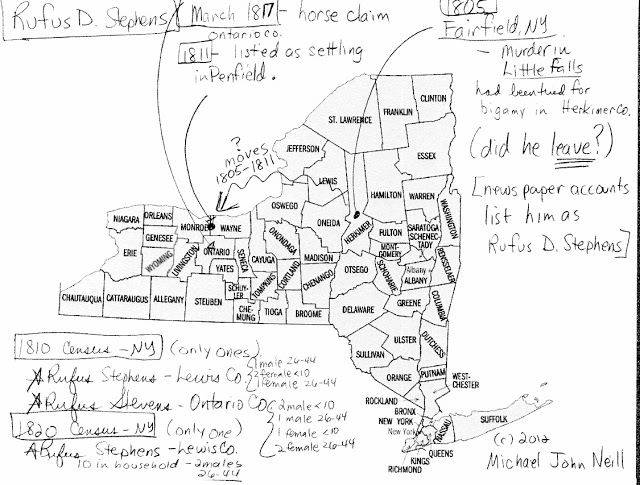 Rufus D. Stephens
March 1817 - horse claim
Ontario co.
1811 - listed as settling
in Penfield.
1805
Fairfield, NY
- murder in
Little Falls
had been tried for
bigamy in Herkimer Co.
(did he leave?)
[newspaper accounts
list him as
Rufus D. Stephens]
?
moves
1805-1811
CLINTON
FRANKLIN
ST. LAWRENCE
ESSEX
JEFFERSON
LEWIS
HAMILTON
WARREN
WASHINGTON
OSWEGO
ONEIDA
HERKIMER
FULTON
SARATOGA
SCHENEC-
TADY
MONT-
GOMERY
RENSSELAER
NIAGARA
ORLEANS
MONROE
WAYNE
GENESEE
ERIE
WYOMING
LIVINGSTON
ONTARIO
YATES
SENECA
CAYUGA
ONONDAGA
MADISON
OTSEGO
SCHOHARIE
Albany
ALBANY
CHAUTAUQUA
CATTARAUGUS
ALLEGANY
STEUBEN
SCHUY-
LER
CHE-
MUNG
TOMPKINS
TIOGA
CORTLAND
BROOME
CHENANGO
DELAWARE
GREENE
COLUMBIA
ULSTER
DUTCHESS
SULLIVAN
ORANGE
PUTNAM
WEST-
CHESTER
ROCKLAND
BRONX
NEW YORK
New York
NASSAU
SUFFOLK
QUEENS
KINGS
RICHMOND
1810 Census - NY (only ones)
Rufus Stephens - Lewis Co.
1 male 26-44
2 female <10
1 female 26-44
Rufus Stevens - Ontario Co.
2 male <10
1 male 26-44
1 female <10
2 female 26-44
1820 Census - NY (only one)
Rufus Stephens - Lewis Co.
10 in household - 2 males
26-44
(c) 2012
Michael John Neill